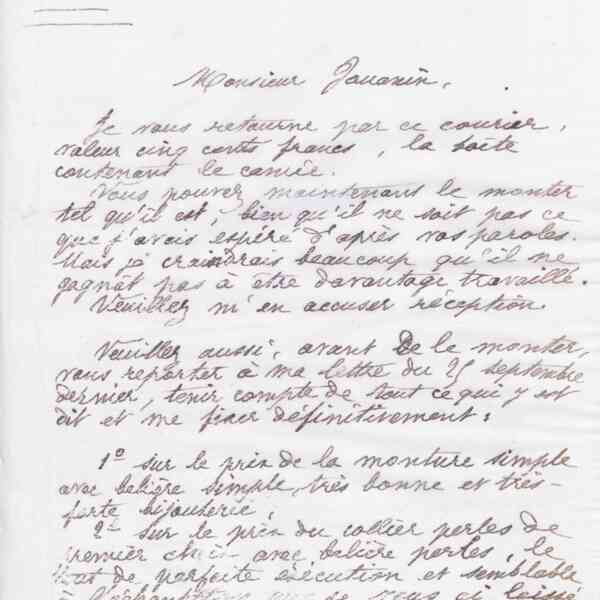 Monsieur Jouanin,
Je vous retourne par ce courier,
valeur cinq cents francs, la boîte
contenant le camée.
Vous pouvez maintenant le monter
tel qu'il est, bien qu'il ne soit pas ce
que j'avais espéré d'après vos paroles.
Mais je craindrais beaucoup qu'il ne
gagnât pas à être davantage travaillé.
Veuillez m'en accuser réception.
Veuillez aussi, avant de le monter,
vous reporter à ma lettre du 25 septembre
dernier, tenir compte de tout ce qui y est
dit et me fixer définitivement:
1º sur le prix de la monture simple
avec belière simple, très bonne et très-
forte bijouterie;
2º sur le prix du collier perles de
premier choix avec belière perles, le
tout de parfaite exécution et semblable
l'échantillon que je vous ai laissé